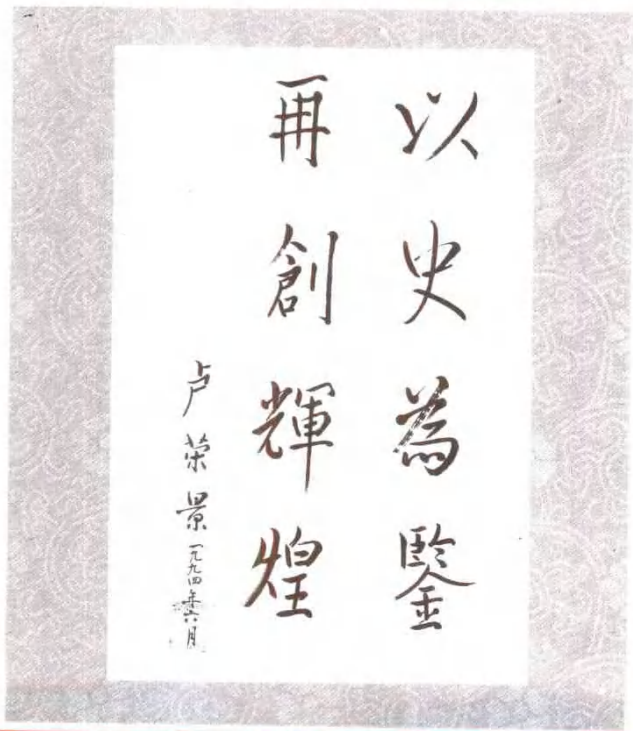 以史為鑒
再創輝煌
卢荣景一九九四年六月